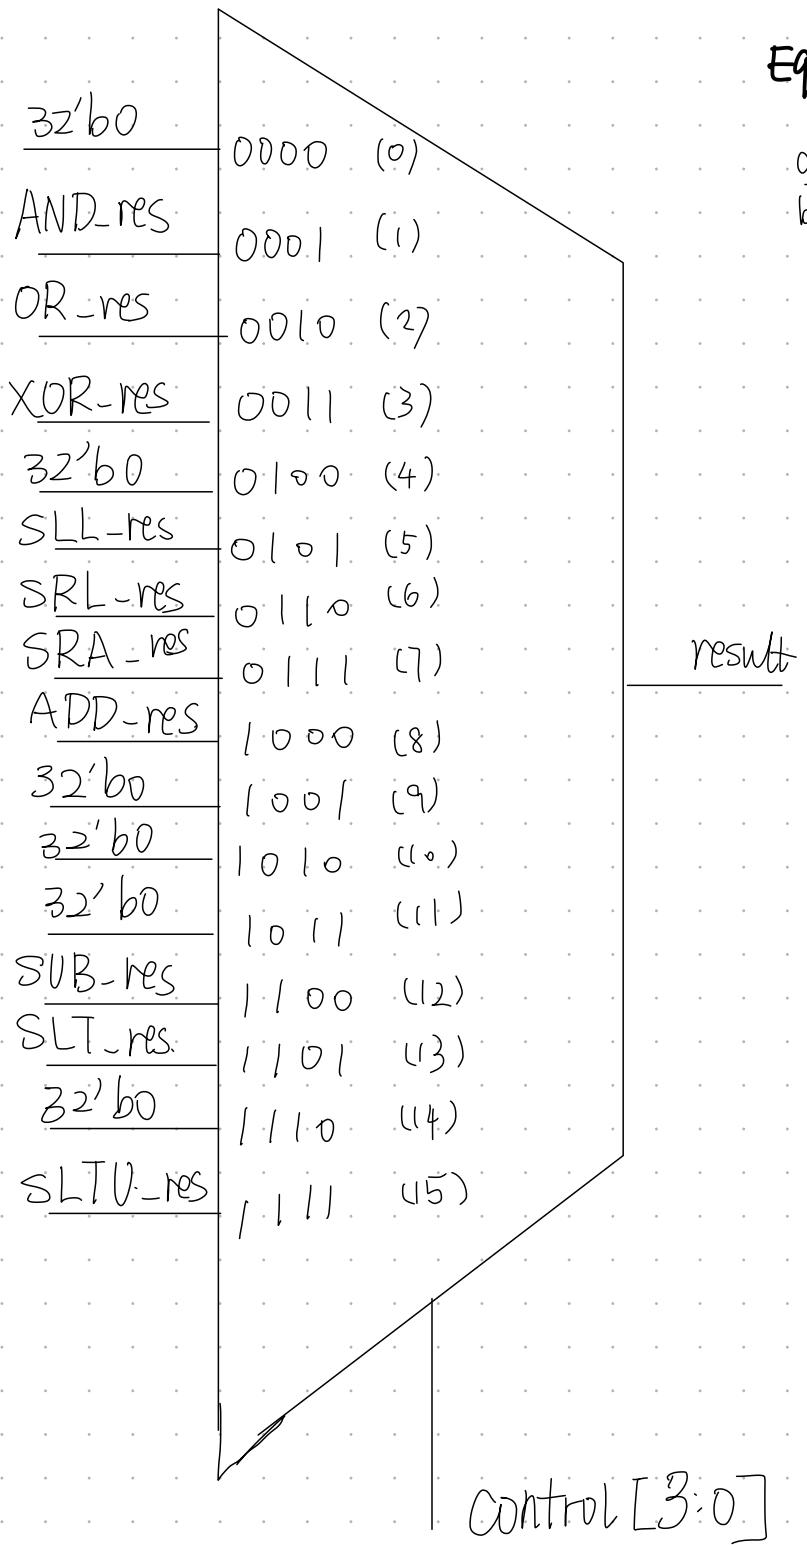 Eq
32'b0 0000 (0)
AND_res 0001 (1)
OR_res 0010 (2)
XOR_res 0011 (3)
32'b0 0100 (4)
SLL_res 0101 (5)
SRL_res 0110 (6)
SRA_res 0111 (7)
result
ADD_res 1000 (8)
32'b0 1001 (9)
32'b0 1010 (10)
32'b0 1011 (11)
SUB_res 1100 (12)
SLT_res 1101 (13)
32'b0 1110 (14)
SLTU_res 1111 (15)
control [3:0]